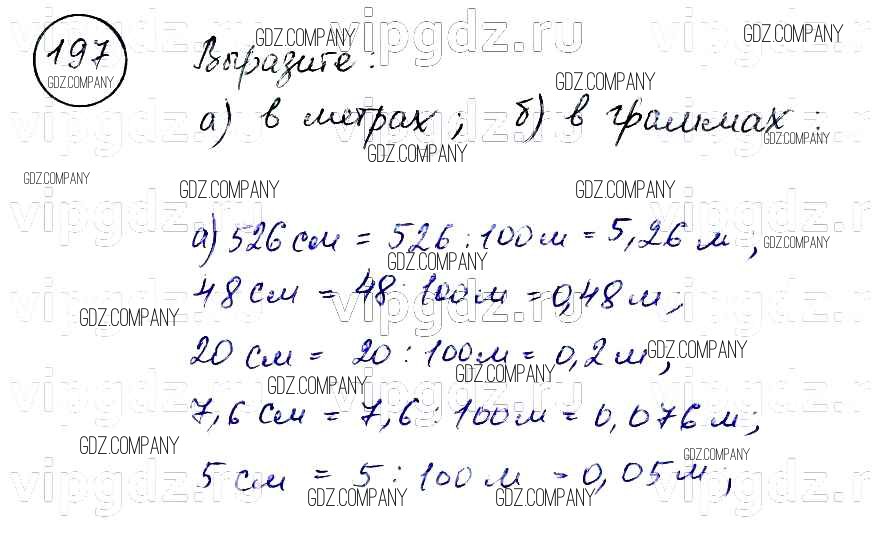 197 Выразите:
а) в метрах; б) в граммах:
а) 526 см = 526 : 100 м = 5,26 м;
48 см = 48 : 100 м = 0,48 м;
20 см = 20 : 100 м = 0,2 м;
7,6 см = 7,6 : 100 м = 0,076 м;
5 см = 5 : 100 м = 0,05 м;
vipgdz.ru
GDZ.COMPANY